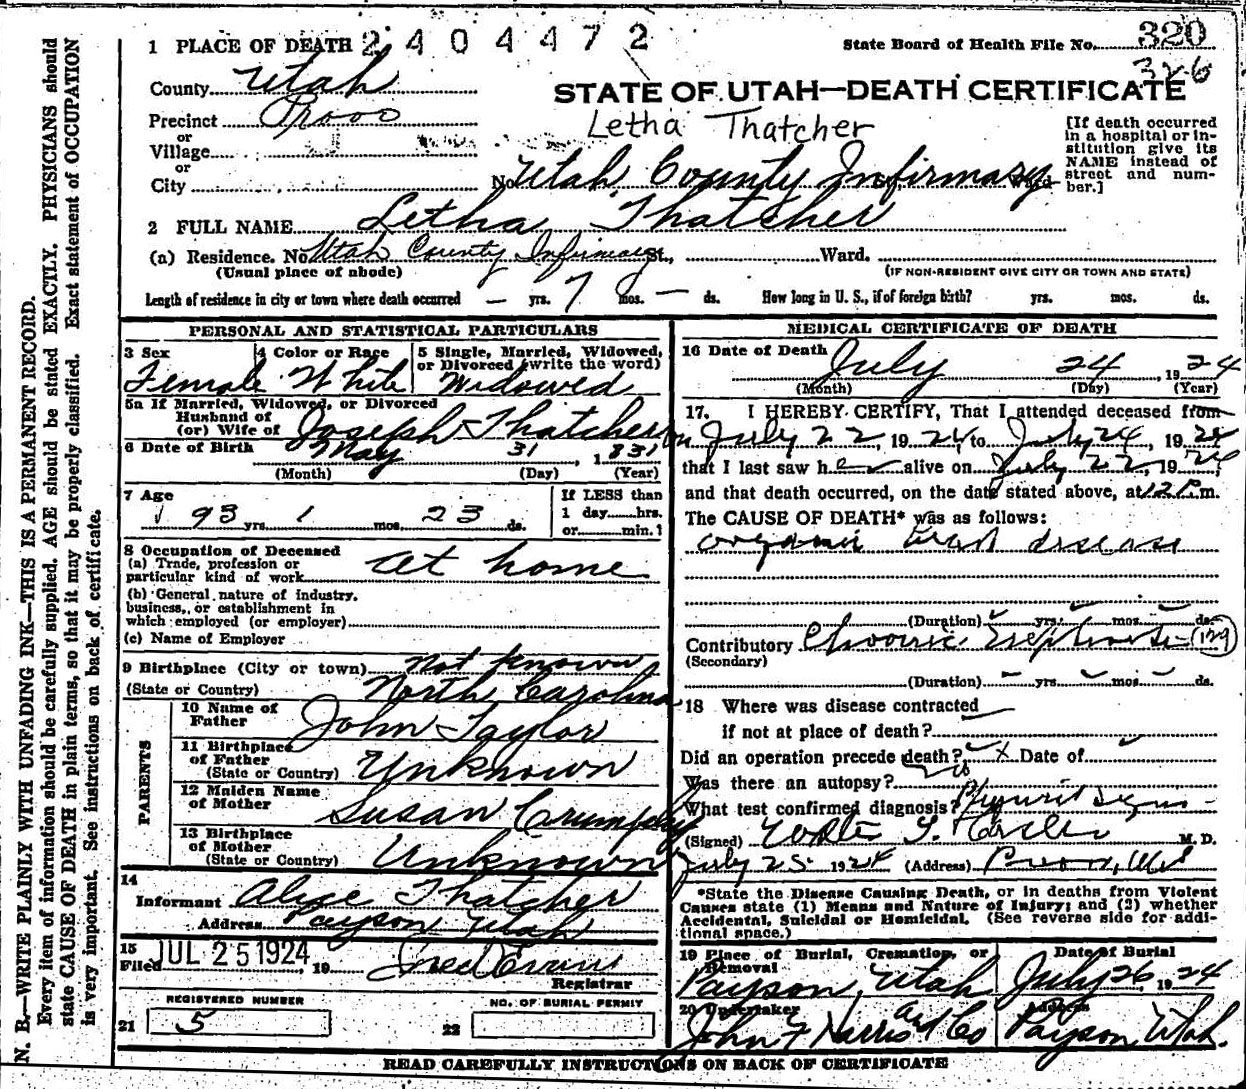 1 PLACE OF DEATH 2404472
State Board of Health File No. 320
326
County Utah
STATE OF UTAH—DEATH CERTIFICATE
Precinct Provo
Letha Thatcher
or
Village
or
City
No Utah County Infirmary St., Ward
[If death occurred
in a hospital or in-
stitution give its
NAME instead of
street and num-
ber.]
2 FULL NAME Letha Thatcher
(a) Residence. No Utah County Infirmary St., Ward.
(Usual place of abode)
(IF NON-RESIDENT GIVE CITY OR TOWN AND STATE)
Length of residence in city or town where death occurred — yrs. 7 mos. — ds. How long in U. S., if of foreign birth? yrs. mos. ds.
PERSONAL AND STATISTICAL PARTICULARS
3 Sex
Female
4 Color or Race
White
5 Single, Married, Widowed,
or Divorced (write the word)
Widowed
5a If Married, Widowed, or Divorced
Husband of
(or) Wife of Joseph Thatcher
6 Date of Birth May 31, 1831
(Month) (Day) (Year)
7 Age
93 yrs. 1 mos. 23 ds.
If LESS than
1 day hrs.
or min.
8 Occupation of Deceased
(a) Trade, profession or
particular kind of work at home
(b) General nature of industry,
business, or establishment in
which employed (or employer)
(c) Name of Employer
9 Birthplace (City or town) not known
(State or Country) North Carolina
PARENTS
10 Name of
Father John Taylor
11 Birthplace
of Father
(State or Country) Unknown
12 Maiden Name
of Mother Susan Crumpley
13 Birthplace
of Mother
(State or Country) Unknown
14
Informant Alice Thatcher
Address Payson Utah
15
Filed JUL 25 1924, 19 Fred Evans
Registrar
REGISTERED NUMBER
21 5
NO. OF BURIAL PERMIT
22
MEDICAL CERTIFICATE OF DEATH
16 Date of Death July 24, 1924
(Month) (Day) (Year)
17. I HEREBY CERTIFY, That I attended deceased from
on July 22, 1924 to July 24, 1924
that I last saw her alive on July 22, 1924,
and that death occurred, on the date stated above, at 12 P.m.
The CAUSE OF DEATH* was as follows:
organic heart disease
(Duration) yrs. mos ds.
Contributory Chronic Nephritis (129)
(Secondary)
(Duration) yrs mos ds.
18 Where was disease contracted
if not at place of death?
Did an operation precede death? x Date of
Was there an autopsy? No
What test confirmed diagnosis? Physical signs
(Signed) Walter T. M.D.
July 25 1924 (Address) Provo, Utah
*State the Disease Causing Death, or in deaths from Violent
Causes state (1) Means and Nature of Injury; and (2) whether
Accidental, Suicidal or Homicidal. (See reverse side for addi-
tional space.)
19 Place of Burial, Cremation, or
Removal
Payson, Utah
Date of Burial
July 26, 1924
20 Undertaker
John F Harris and Co
Address
Payson Utah.
READ CAREFULLY INSTRUCTIONS ON BACK OF CERTIFICATE
N. B.—WRITE PLAINLY WITH UNFADING INK—THIS IS A PERMANENT RECORD.
Every item of information should be carefully supplied. AGE should be stated EXACTLY. PHYSICIANS should
state CAUSE OF DEATH in plain terms, so that it may be properly classified. Exact statement of OCCUPATION
is very important. See instructions on back of certificate.